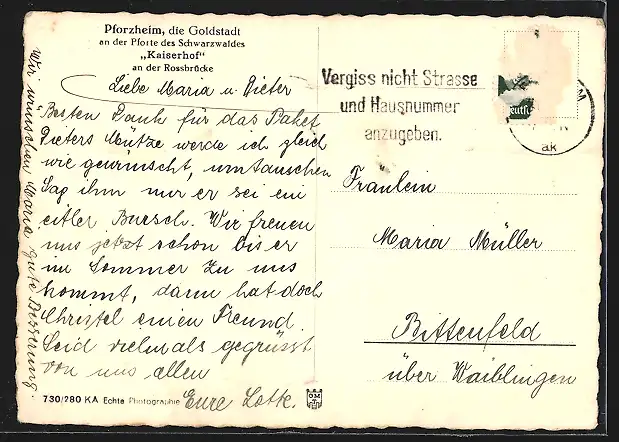 Pforzheim, die Goldstadt
an der Pforte des Schwarzwaldes
„Kaiserhof"
an der Rossbrücke
Liebe Maria u. Dieter
Besten Dank für das Paket
Dieters Mütze werde ich gleich
wie gewünscht, umtauschen
Sag ihm nur er sei ein
eitler Bursch. Wir freuen
uns jetzt schon bis er
im Sommer zu uns
kommt, dann hat doch
Christel einen Freund.
Seid vielmals gegrüsst
von uns allen
Eure Lotte.
Wir wünschen Maria gute Besserung.
730/280 KA Echte Photographie
Vergiss nicht Strasse
und Hausnummer
anzugeben.
ak
Fräulein
Maria Müller
Bittenfeld
über Waiblingen